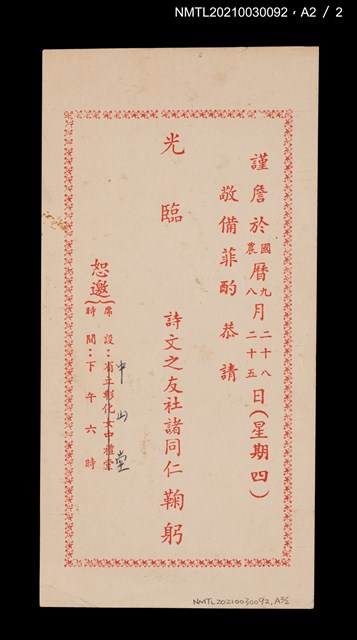 NMTL20210030092，A2 / 2
謹詹於國農曆九八月二十八二十五日(星期四)
敬備菲酌恭請
光臨
詩文之友社諸同仁鞠躬
恕邀
席設：省立彰化女中禮堂
中山堂
時間：下午六時
NMTL20210030092, A2/2